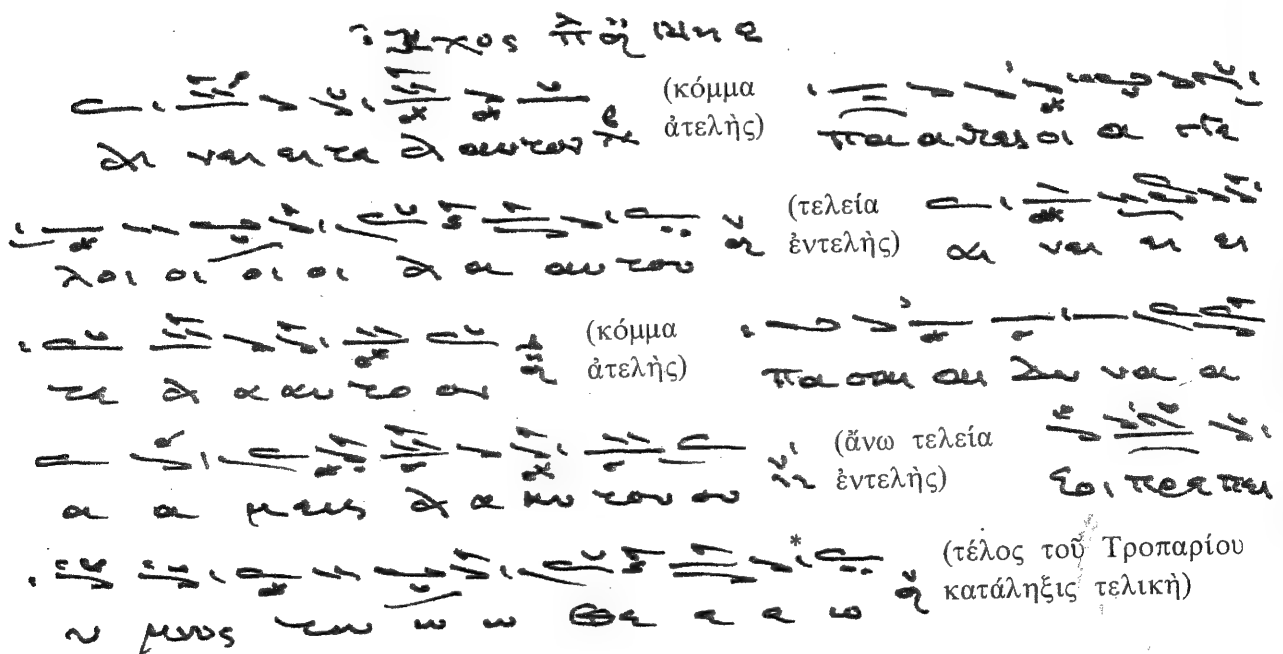 Ἦχος
αι νει ει τε α αυτον (κόμμα ἀτελὴς) πα αντες οι α γγε
λοι οι οι οι α α αυτου (τελεία ἐντελής) αι νει ει ει
τε α α αυ το ον (κόμμα ἀτελὴς) πα σαι αι δυ να α
α α μεις α α αυ του ου (ἄνω τελεία ἐντελής) Σοι πρε πει
υ μνος τω ω ω Θε ε ε ω * (τέλος τοῦ Τροπαρίου κατάληξις τελικὴ)